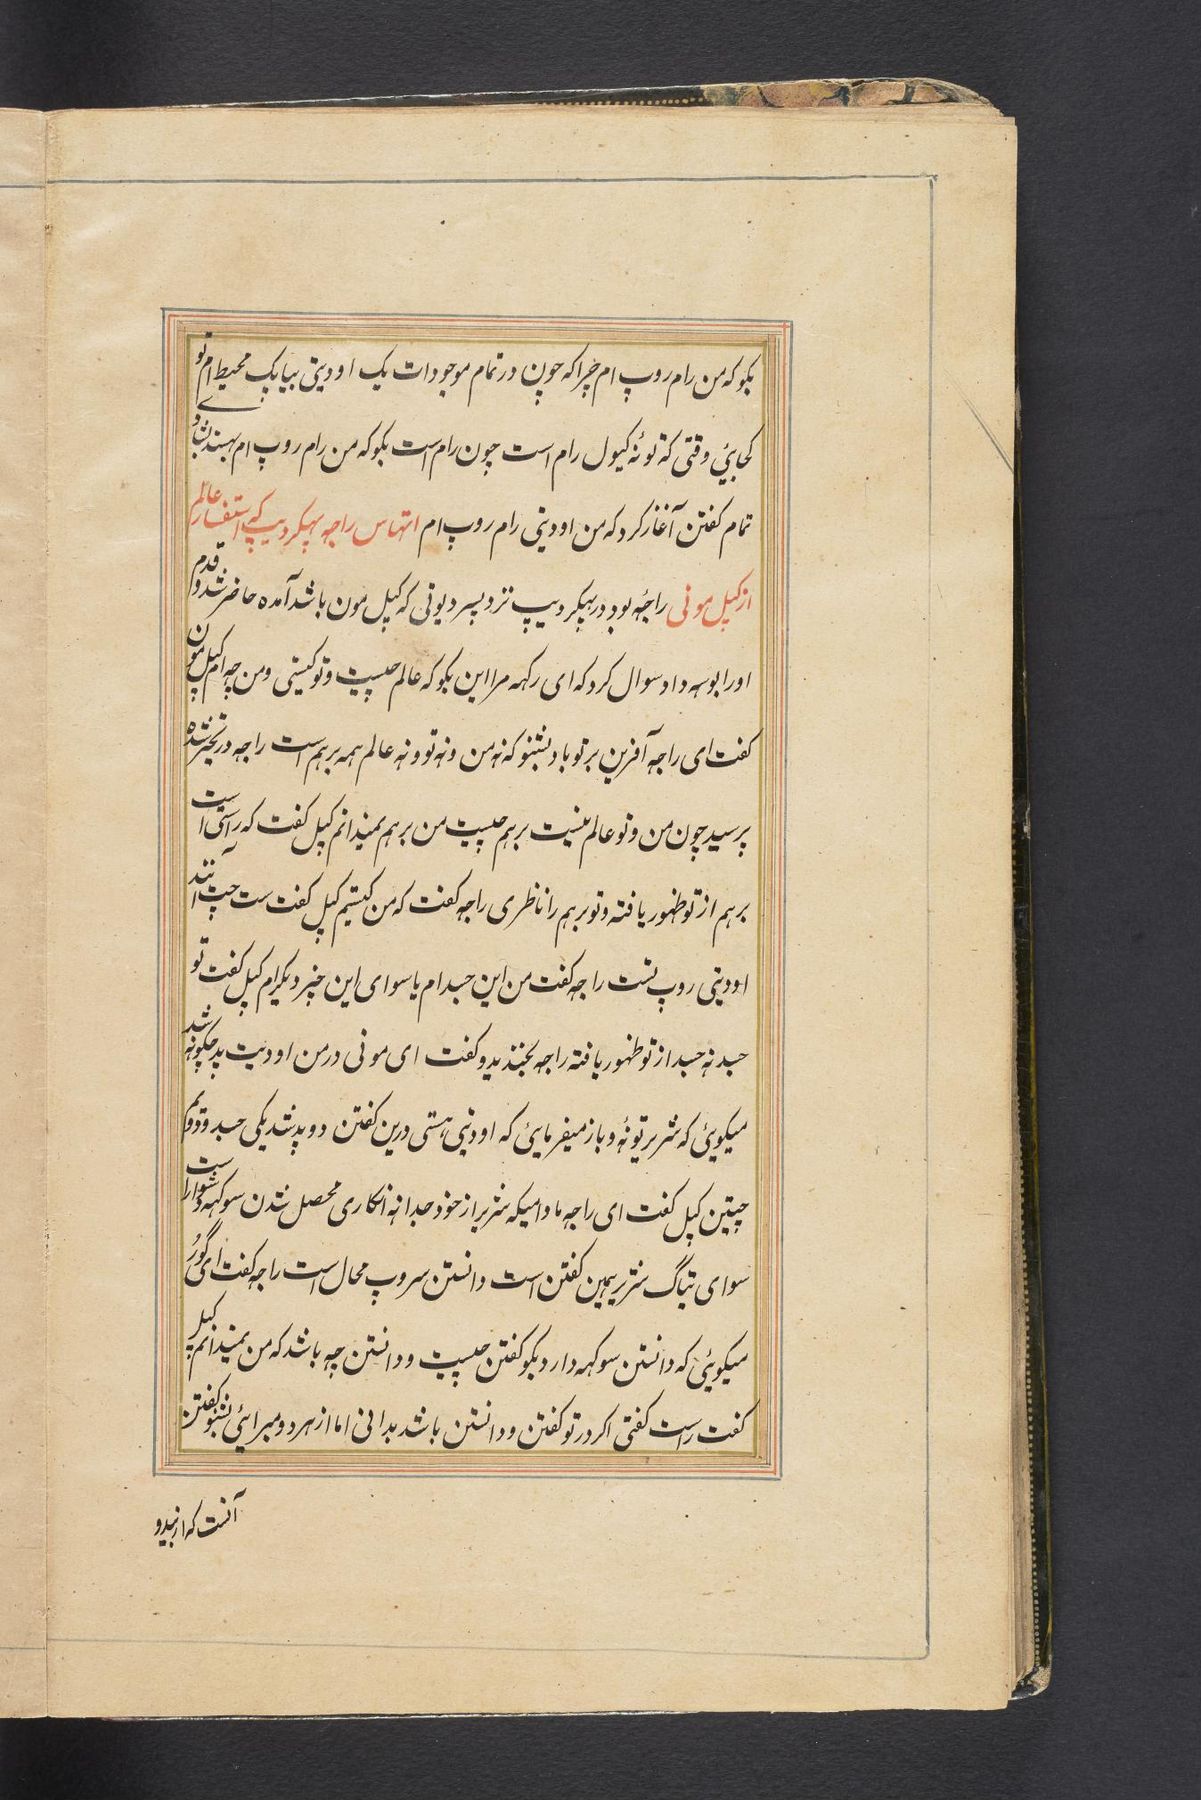 بکو که من رام روپ ام چرا که چون در تمام موجودات یک اودیتی بیاپک محیط ام تو
کجایی وقتی که تو نۀ کیول رام است چون رام است بکو که من رام روپ ام
تمام کفتن آغاز کرد که من اودیتی رام روپ ام اتهاس راجه پهکر دیپ که استفسار عالم
از کپل مونی راجۀ بود در پهکر دیپ نزد پسر دیوتی که کپل مون باشد آمده حاضر شد و قدم
اورا بوسه داد سوال کرد که ای رکهه مرا این بکو که عالم چیست و تو کیستی و من چه ام کپل مون
کفت ای راجه آفرین بر تو باد بشنو که نه من و نه تو و نه عالم همه برهم است راجه در تحیر شده
پرسید چون من و تو و عالم نیست برهم چیست من برهم نمیدانم کپل کفت که راستی است
برهم از تو ظهور یافته و تو برهم را ناظری راجه کفت که من کیستم کپل کفت ست چت آنند
اودیتی روپ تست راجه کفت من این جسد ام یا سوای این چیز دیکر ام کپل کفت تو
جسد نه جسد از تو ظهور یافته راجه بخندید و کفت ای مونی در من اودیت پد چکونه شد
میکویئ که شریر تو نۀ و باز میفرمایئ که اودیتی هستی درین کفتن دو پد شد یکی جسد و دویم
چیتن کپل کفت ای راجه مادامیکه شریر از خود جدا نه انکاری محصل شدن سوکهه دشوار است
سوای تیاگ شریر همین کفتن است دانستن سروپ محال است راجه کفت ای گور
میکویئی که دانستن سوکهه دارد بکو کفتن چیست و دانستن چه باشد که من نمیدانم کپل
کفت راست کفتی اکر در تو کفتن و دانستن باشد بدانی اما از هر دو مبرایئ بشنو کفتن
آنست که از